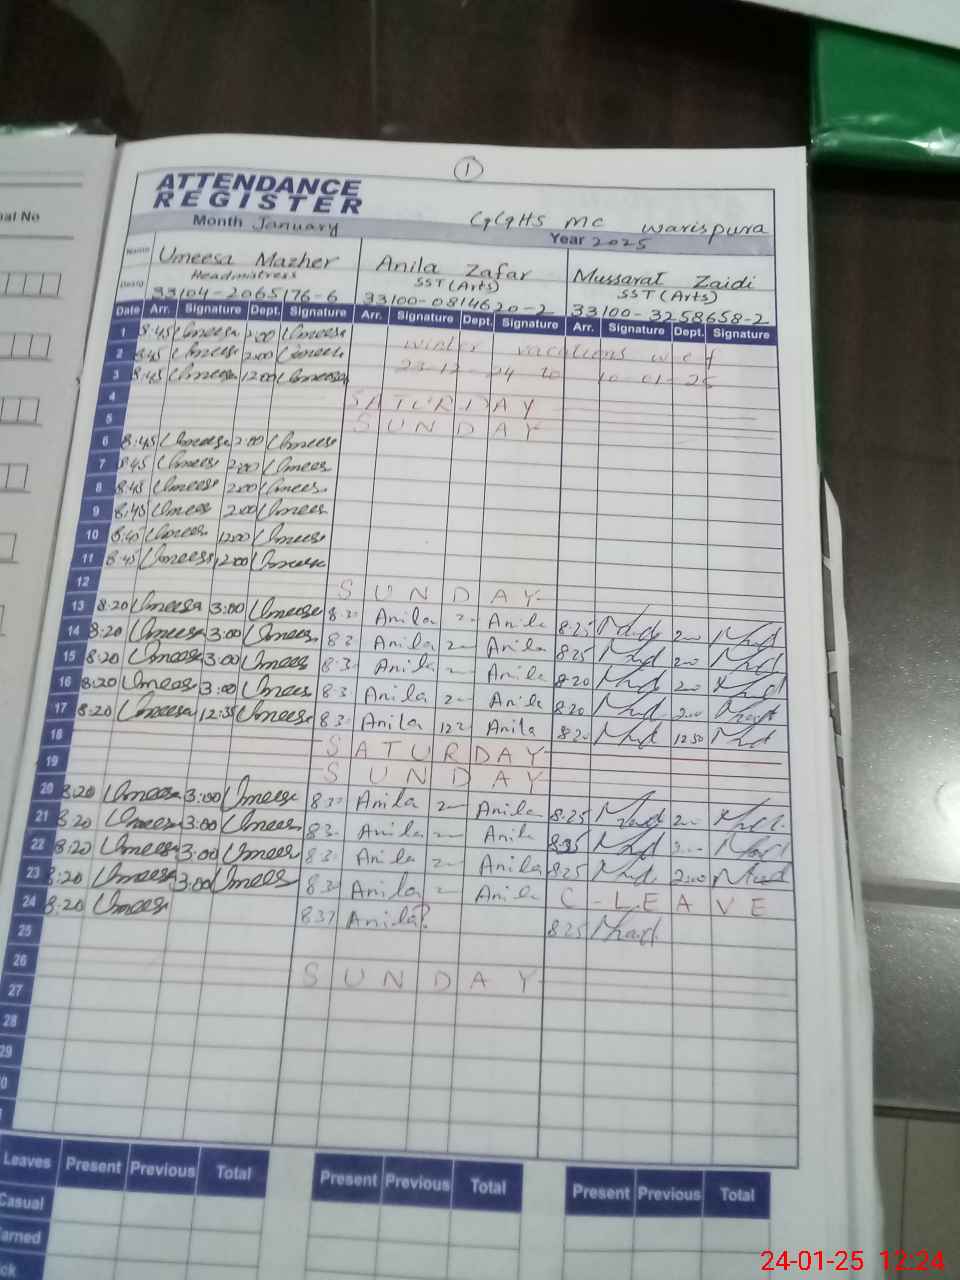 1
ATTENDANCE
REGISTER
GGHS MC Warispura
Month January
Year 2025
Name Umeesa Mazher Anila Zafar Mussarat Zaidi
Headmistress SST (Arts) SST (Arts)
33104-2065176-6 33100-0814620-2 33100-3258658-2
Date Arr. Signature Dept. Signature Arr. Signature Dept. Signature Arr. Signature Dept. Signature
1 8:45 Umeesa 2:00 Umeesa winter vacations w e f
2 8:45 Umeesa 2:00 Umeesa 23-12-24 to 10-01-25
3 8:45 Umeesa 12:00 Umeesa
4 SATURDAY
5 SUNDAY
6 8:45 Umeesa 2:00 Umeesa
7 8:45 Umeesa 2:00 Umeesa
8 8:45 Umeesa 2:00 Umeesa
9 8:45 Umeesa 2:00 Umeesa
10 8:40 Umeesa 12:00 Umeesa
11 8:45 Umeesa 12:00 Umeesa
12 SUNDAY
13 8:20 Umeesa 3:00 Umeesa Anila Anila 8:25 2:00
14 8:20 Umeesa 3:00 Umeesa Anila Anila 8:25 2:00
15 8:20 Umeesa 3:00 Umeesa Anila Anila 8:20 2:00
16 8:20 Umeesa 3:00 Umeesa Anila Anila 8:20 2:00
17 8:20 Umeesa 12:35 Umeesa Anila Anila 8:20 12:50
18 SATURDAY
19 SUNDAY
20 8:20 Umeesa 3:00 Umeesa Anila Anila 8:25
21 8:20 Umeesa 3:00 Umeesa Anila Anila 8:35
22 8:20 Umeesa 3:00 Umeesa Anila Anila 8:25 2:00
23 8:20 Umeesa 3:00 Umeesa Anila Anila C-LEAVE
24 8:20 Umeesa 8:37 Anila 8:25
25
26 SUNDAY
27
28
29
Leaves Present Previous Total Present Previous Total Present Previous Total
Casual
24-01-25 12:24